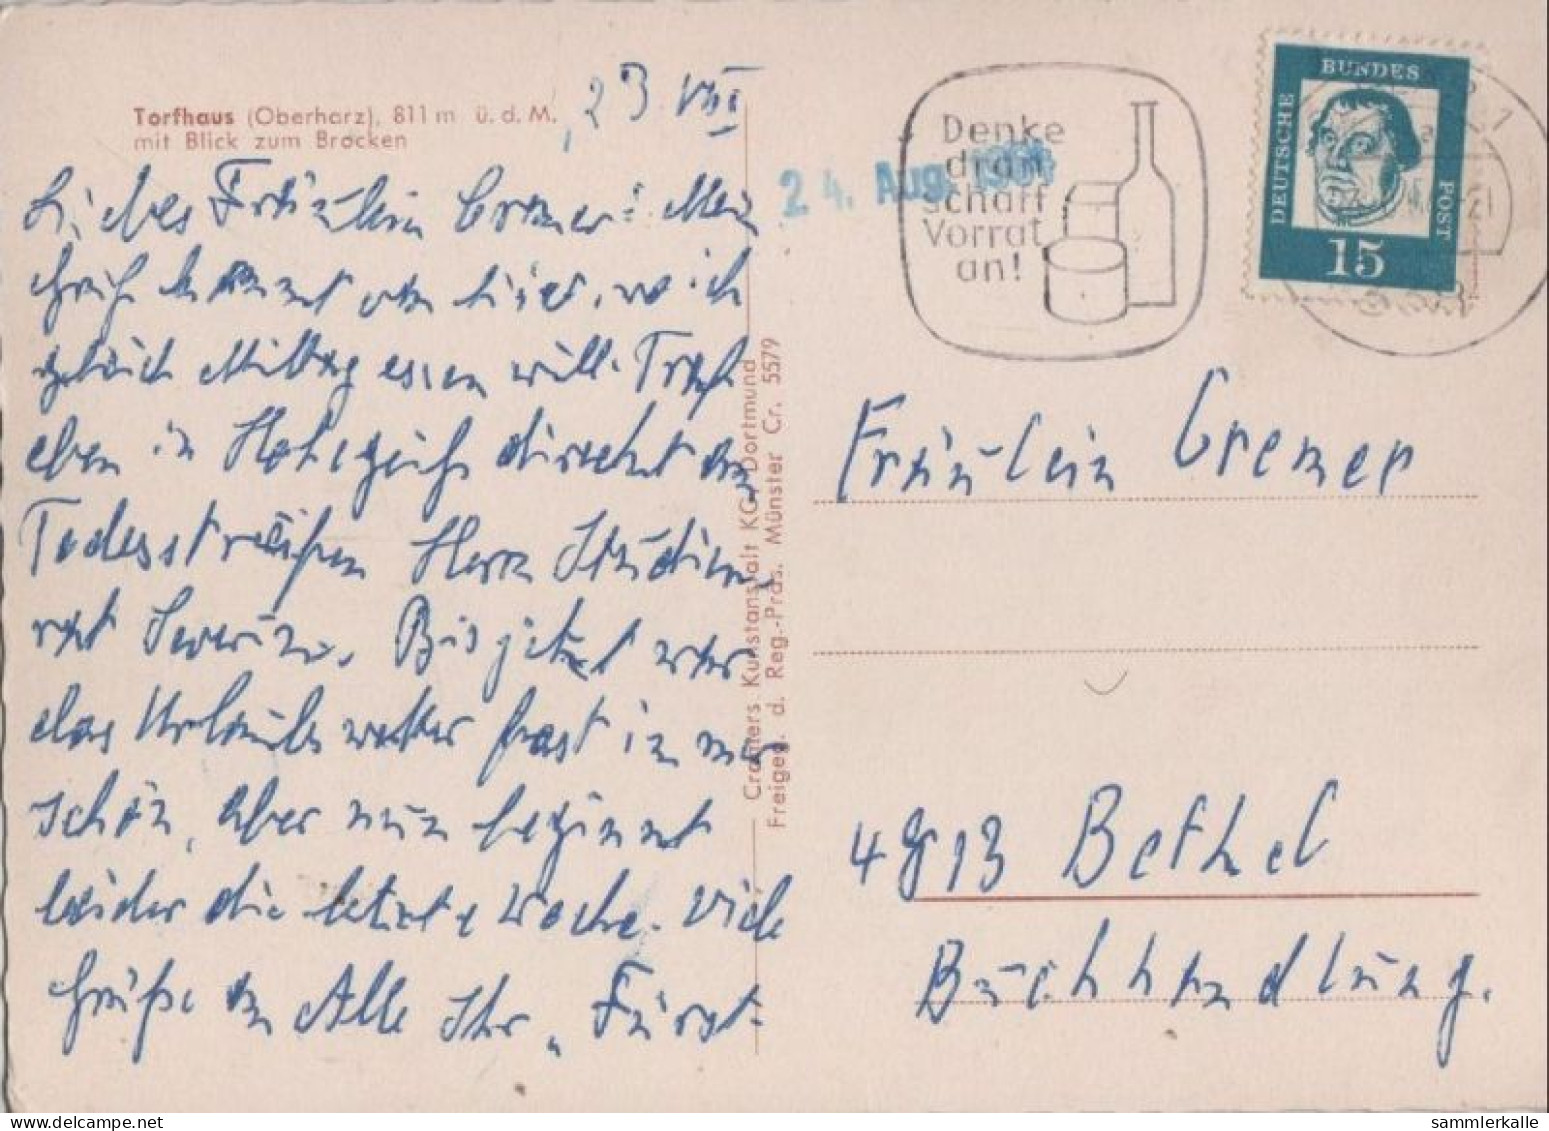 Torfhaus (Oberharz), 811 m ü. d. M.
mit Blick zum Brocken
23 VIII
Liebes Fräulein Cremer! Mein
Gruß kommt von hier, wo ich
gleich Mittag essen will. Traf
eben in Hohegeiß direckt am
Todesstreifen Herrn Studien-
rat Severin. Bis jetzt war
das Urlaubswetter fast immer
schön, aber nun beginnt
leider die letzte Woche. Viele
Grüße an Alle Ihr "Fürst-
Cramers Kunstanstalt KG, Dortmund
Freigeg. d. Reg.-Präs. Münster Cr. 5579
24. Aug. 1964
Denke
dran
schaff
Vorrat
an!
DEUTSCHE
BUNDES
POST
15
Fräulein Cremer
4813 Bethel
Buchhandlung.
sammlerkalle